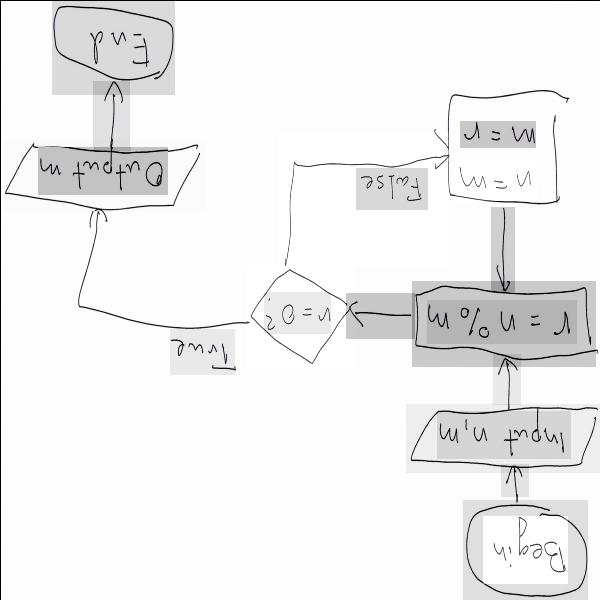 Begin
Input n,m
r = n % m
r = 0?
True
False
n = m
m = r
Output m
End